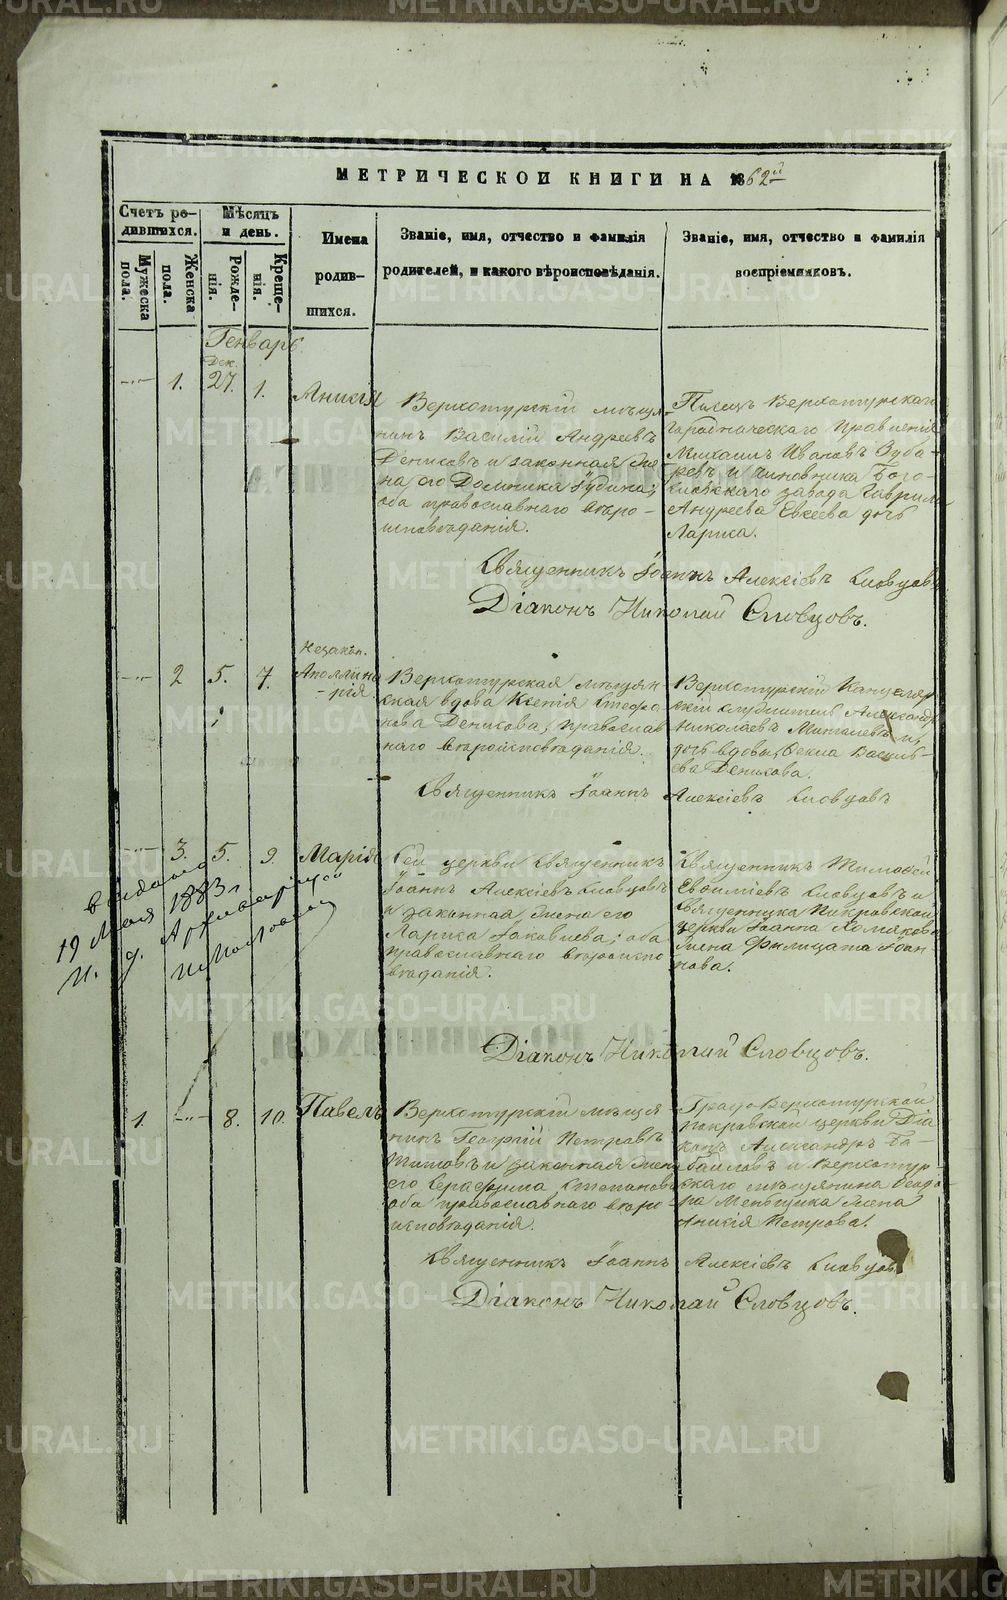 МЕТРИЧЕСКОЙ КНИГИ НА 1862й
Счетъ ро-
дившихся.
Мѣсяцъ
и день.
Имена
родив-
шихся.
Званіе, имя, отчество и фамилія
родителей, и какого вѣроисповѣданія.
Званіе, имя, отчество и фамилія
воспріемниковъ.
Мужеска
пола.
Женска
пола.
Рожде-
нія.
Креще-
нія.
Генварь
Дек.
1. 27. 1. Анисія
Верхотурскій мѣща-
нинъ Василій Андреевъ
Денисовъ и законная же-
на его Домника; оба православнаго вѣро-
исповѣданія.
Писецъ Верхотурскаго
Городническаго Правленія
Михаилъ Ивановъ Зуба-
ревъ и чиновника Бого-
словскаго завода Гаврила
Андреева Евсеева дочь
Лариса.
Священникъ Іоаннъ Алексіевъ Словцовъ
Діаконъ Николай Словцовъ.
Незакон.
2 5. 7. Аполлина-
рія
Верхотурская мѣщан-
ская вдова Ксенія Стефа-
нова Денисова, православ-
наго вѣроисповѣданія.
Верхотурскій Канцеляр-
скій служитель Александръ
Николаевъ и
дочь вдовы, Ѳекла Василь-
ева Денисова.
Священникъ Іоаннъ Алексіевъ Словцовъ
3. 5. 9. Марія
Сей церкви Священникъ
Іоаннъ Алексіевъ Словцовъ
и законная жена его
Лариса Іаковлева; оба
православнаго вѣроиспо-
вѣданія.
Священникъ Тимоѳей
Евѳиміевъ Словцовъ и
Священника Покровской
церкви Іоанна Хомякова
жена Филицата Іоан-
нова.
выдано
19 Мая 1883 г.
И. д. Архиваріуса
Діаконъ Николай Словцовъ.
1. 8. 10. Павелъ
Верхотурскій мѣща-
нинъ Георгій Петровъ
Титовъ и законная жена
его Серафима Степанова
оба православнаго вѣро-
исповѣданія.
Градо-Верхотурской
Покровской церкви Діа-
конъ Александръ и Верхотур-
скаго мѣщанина Ѳеодо-
ра Меньщика жена
Анисія Петрова.
Священникъ Іоаннъ Алексіевъ Словцовъ
Діаконъ Николай Словцовъ.
METRIKI.GASO-URAL.RU